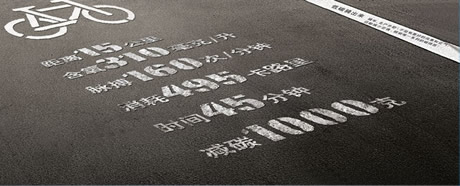 距离15公里
含氧310毫克/升
脉搏160次/分钟
消耗495卡路里
时间45分钟
减碳1000克